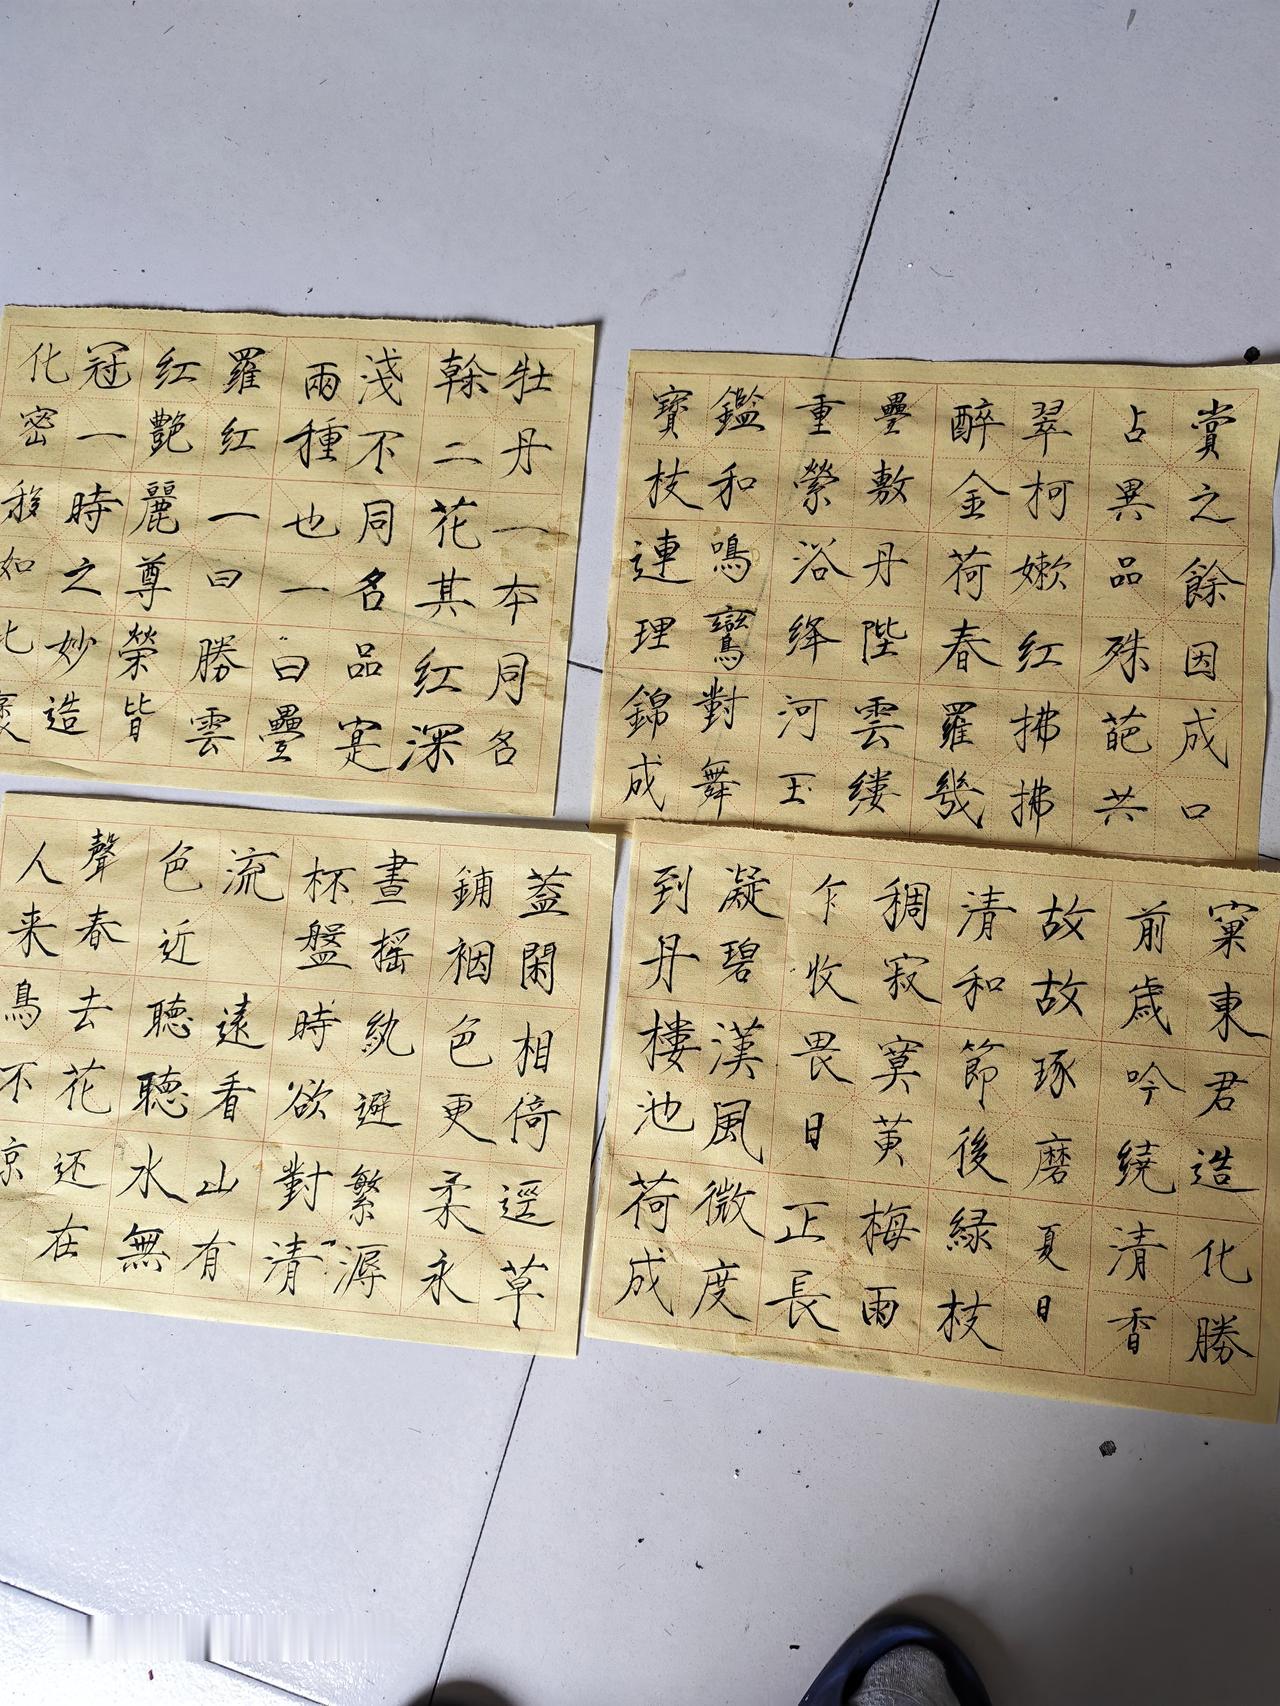 牡丹一本同名
榦二花其红深
淺不同名品寔
兩種也一曰疊
羅红一曰勝雲
红艷麗尊榮皆
冠一時之妙造
化密移如匕褒
賞之餘因成口
占異品殊葩共
翠柯嫩红拂拂
醉金荷春羅幾
疊敷丹陛雲縷
重縈浴绛河玉
鑑和鳴鸞對舞
寶枝連理錦成
窠東君造化勝
前歲吟繞清香
故故琢磨夏日
清和節後緑枝
稠寂寞黄梅雨
乍收畏日正長
凝碧漢風微度
到丹樓池荷成
蓋閑相倚逕草
鋪裀色更柔永
晝摇紈避繁溽
杯盤時欲對清
流遠看山有
色近聽聽水無
聲春去花还在
人来鳥不